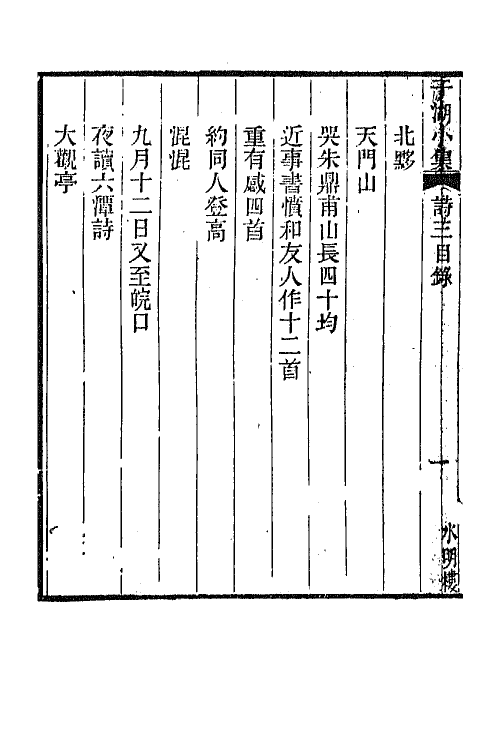 于湖小集
詩三目錄
十
水明樓
北黟
天門山
哭朱鼎甫山長四十均
近事書憤和友人作十二首
重有感四首
約同人登高
混混
九月十二日又至皖口
夜讀六潭詩
大觀亭